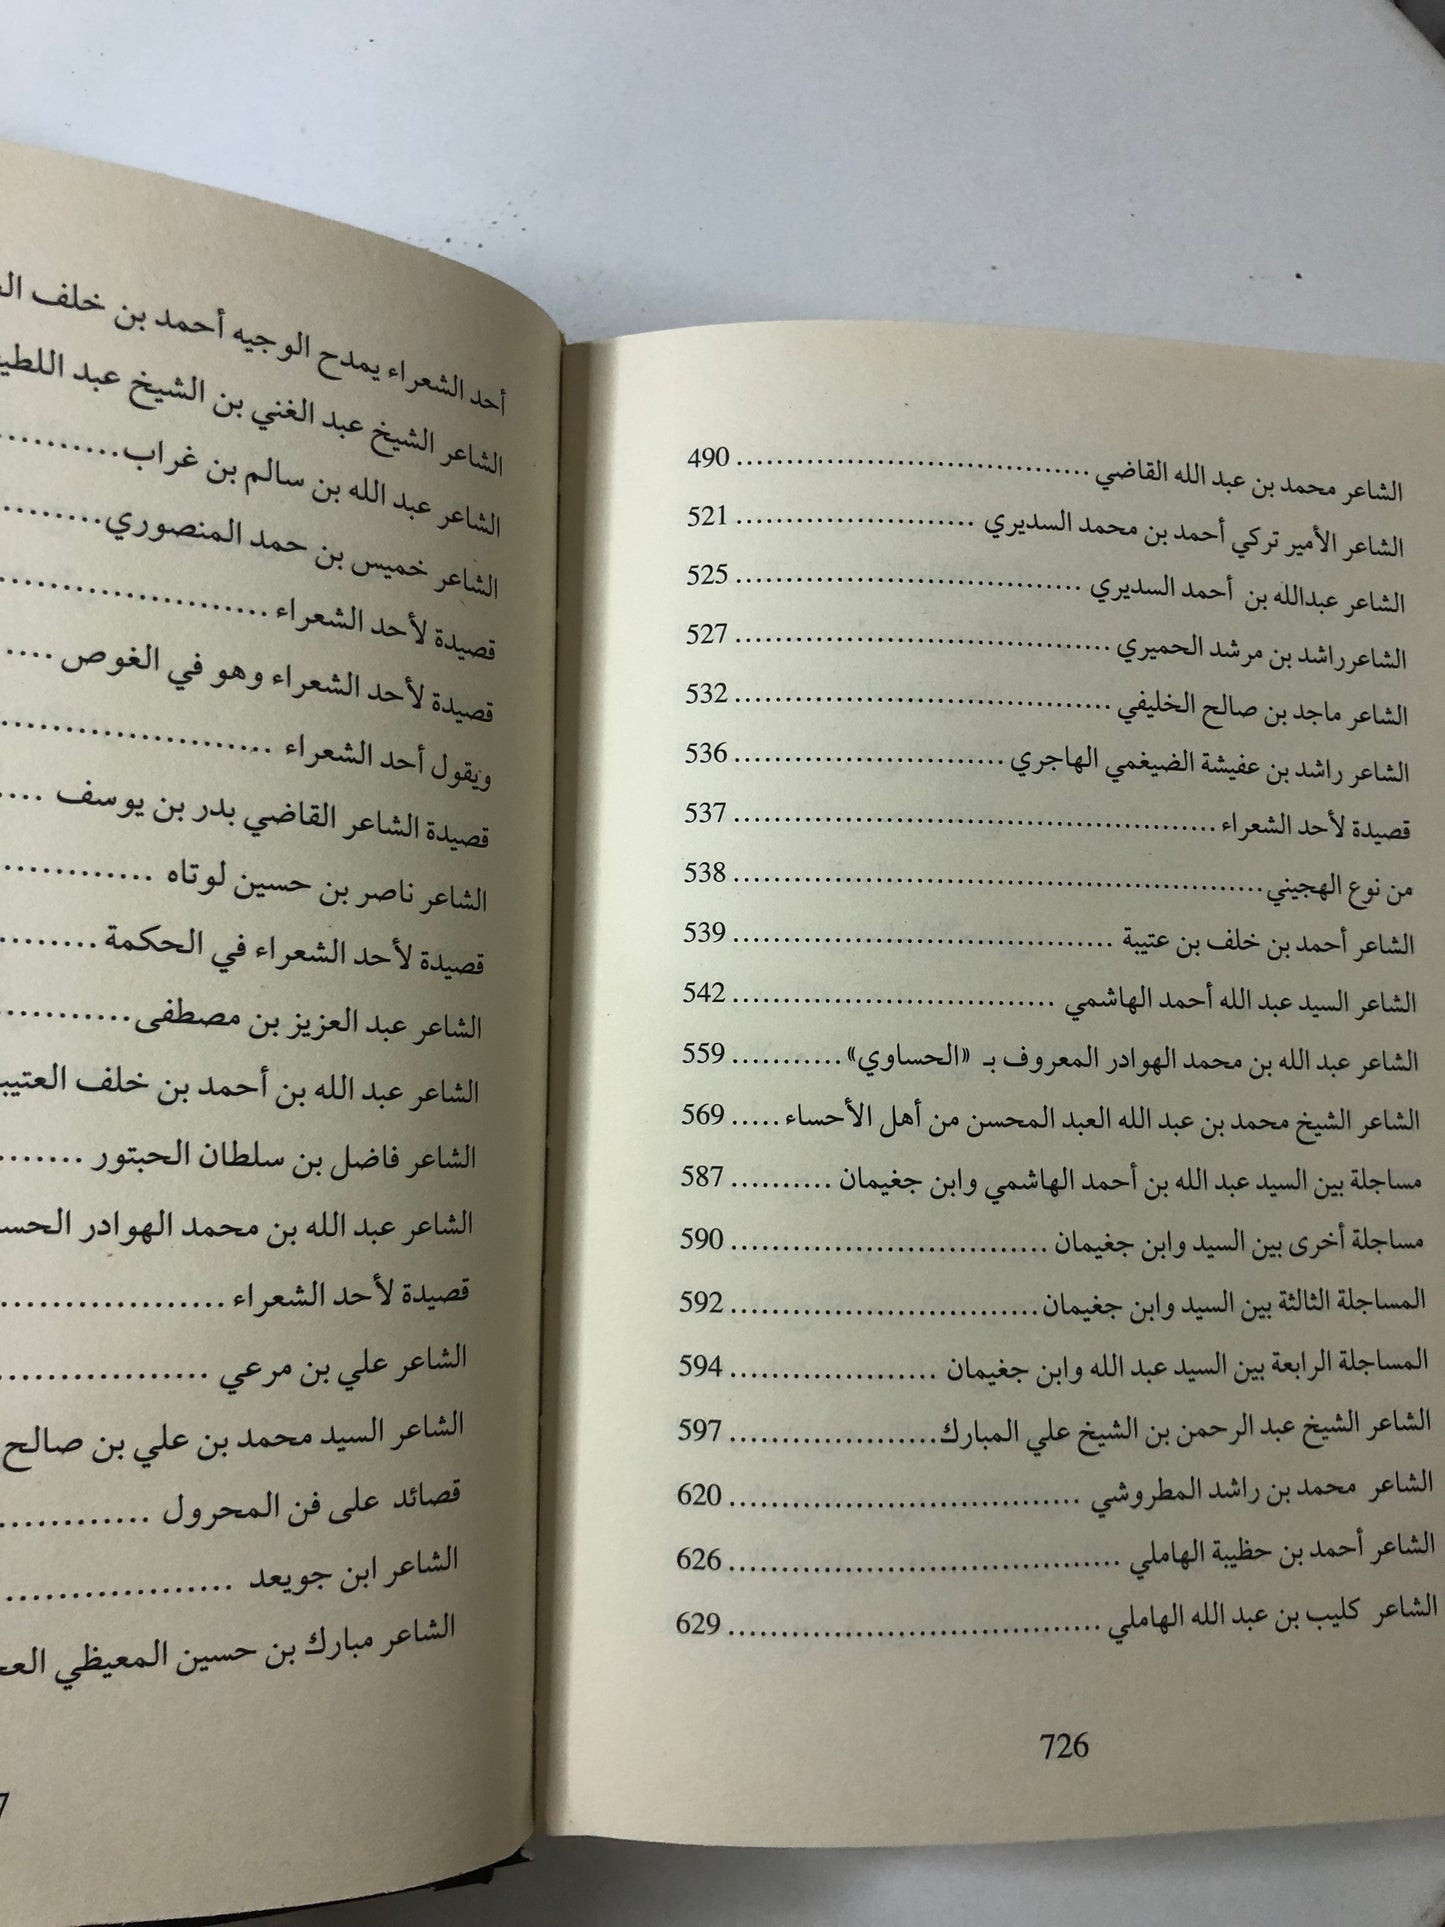 الشاعر محمد بن عبد الله القاضي ..................................... 490
الشاعر الأمير تركي أحمد بن محمد السديري ......................... 521
الشاعر عبدالله بن أحمد السديري .................................... 525
الشاعرراشد بن مرشد الحميري ....................................... 527
الشاعر ماجد بن صالح الخليفي ....................................... 532
الشاعر راشد بن عفيشة الضيغمي الهاجري ............................ 536
قصيدة لأحد الشعراء .................................................. 537
من نوع الهجيني ...................................................... 538
الشاعر أحمد بن خلف بن عتيبة ....................................... 539
الشاعر السيد عبد الله أحمد الهاشمي ................................. 542
الشاعر عبد الله بن محمد الهوادر المعروف بـ «الحساوي» ........... 559
الشاعر الشيخ محمد بن عبد الله العبد المحسن من أهل الأحساء ..... 569
مساجلة بين السيد عبد الله بن أحمد الهاشمي وابن جغيمان .......... 587
مساجلة أخرى بين السيد وابن جغيمان ................................ 590
المساجلة الثالثة بين السيد وابن جغيمان ............................... 592
المساجلة الرابعة بين السيد عبد الله وابن جغيمان .................... 594
الشاعر الشيخ عبد الرحمن بن الشيخ علي المبارك ..................... 597
الشاعر محمد بن راشد المطروشي .................................... 620
الشاعر أحمد بن حظيبة الهاملي ........................................ 626
الشاعر كليب بن عبد الله الهاملي ...................................... 629
726
أحد الشعراء يمدح الوجيه أحمد بن خلف
الشاعر الشيخ عبد الغني بن الشيخ عبد
الشاعر عبد الله بن سالم بن غراب ..........
الشاعر خميس بن حمد المنصوري ........
قصيدة لأحد الشعراء .....................
قصيدة لأحد الشعراء وهو في الغوص ....
ويقول أحد الشعراء .....................
قصيدة الشاعر القاضي بدر بن يوسف ....
الشاعر ناصر بن حسين لوتاه ............
قصيدة لأحد الشعراء في الحكمة ........
الشاعر عبد العزيز بن مصطفى ...........
الشاعر عبد الله بن أحمد بن خلف
الشاعر فاضل بن سلطان الحبتور .......
الشاعر عبد الله بن محمد الهوادر
قصيدة لأحد الشعراء ..................
الشاعر علي بن مرعي .................
الشاعر السيد محمد بن علي بن صالح
قصائد على فن المحرول ............
الشاعر ابن جويعد ..................
الشاعر مبارك بن حسين المعيظي